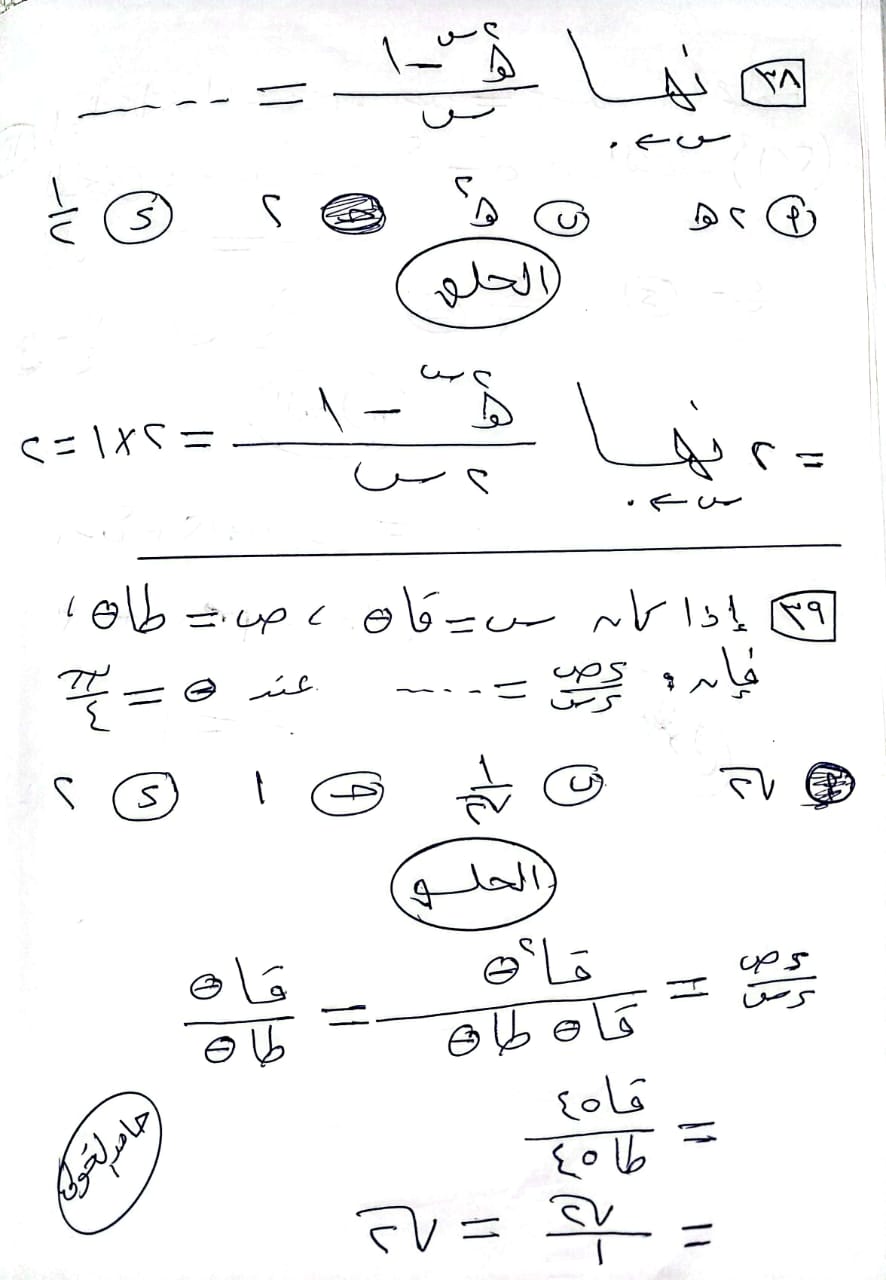 ٣٨ نهــا هـ^٢س - ١ / س = .....
س ← ٠
أ ٢هـ ب هـ^٢ ج ٢ د ١/٢
الحل
= ٢ نهــا هـ^٢س - ١ / ٢س = ٢×١ = ٢
س ← ٠
٣٩ إذا كان س = قا θ ، ص = طا θ ،
فإن: دص/دس = ..... عند θ = π/٤
أ √٢ ب ١/√٢ ج ١ د ٢
الحل
دص/دس = قا^٢ θ / قا θ طا θ = قا θ / طا θ
= قا ٤٥ / طا ٤٥
= √٢ / ١ = √٢